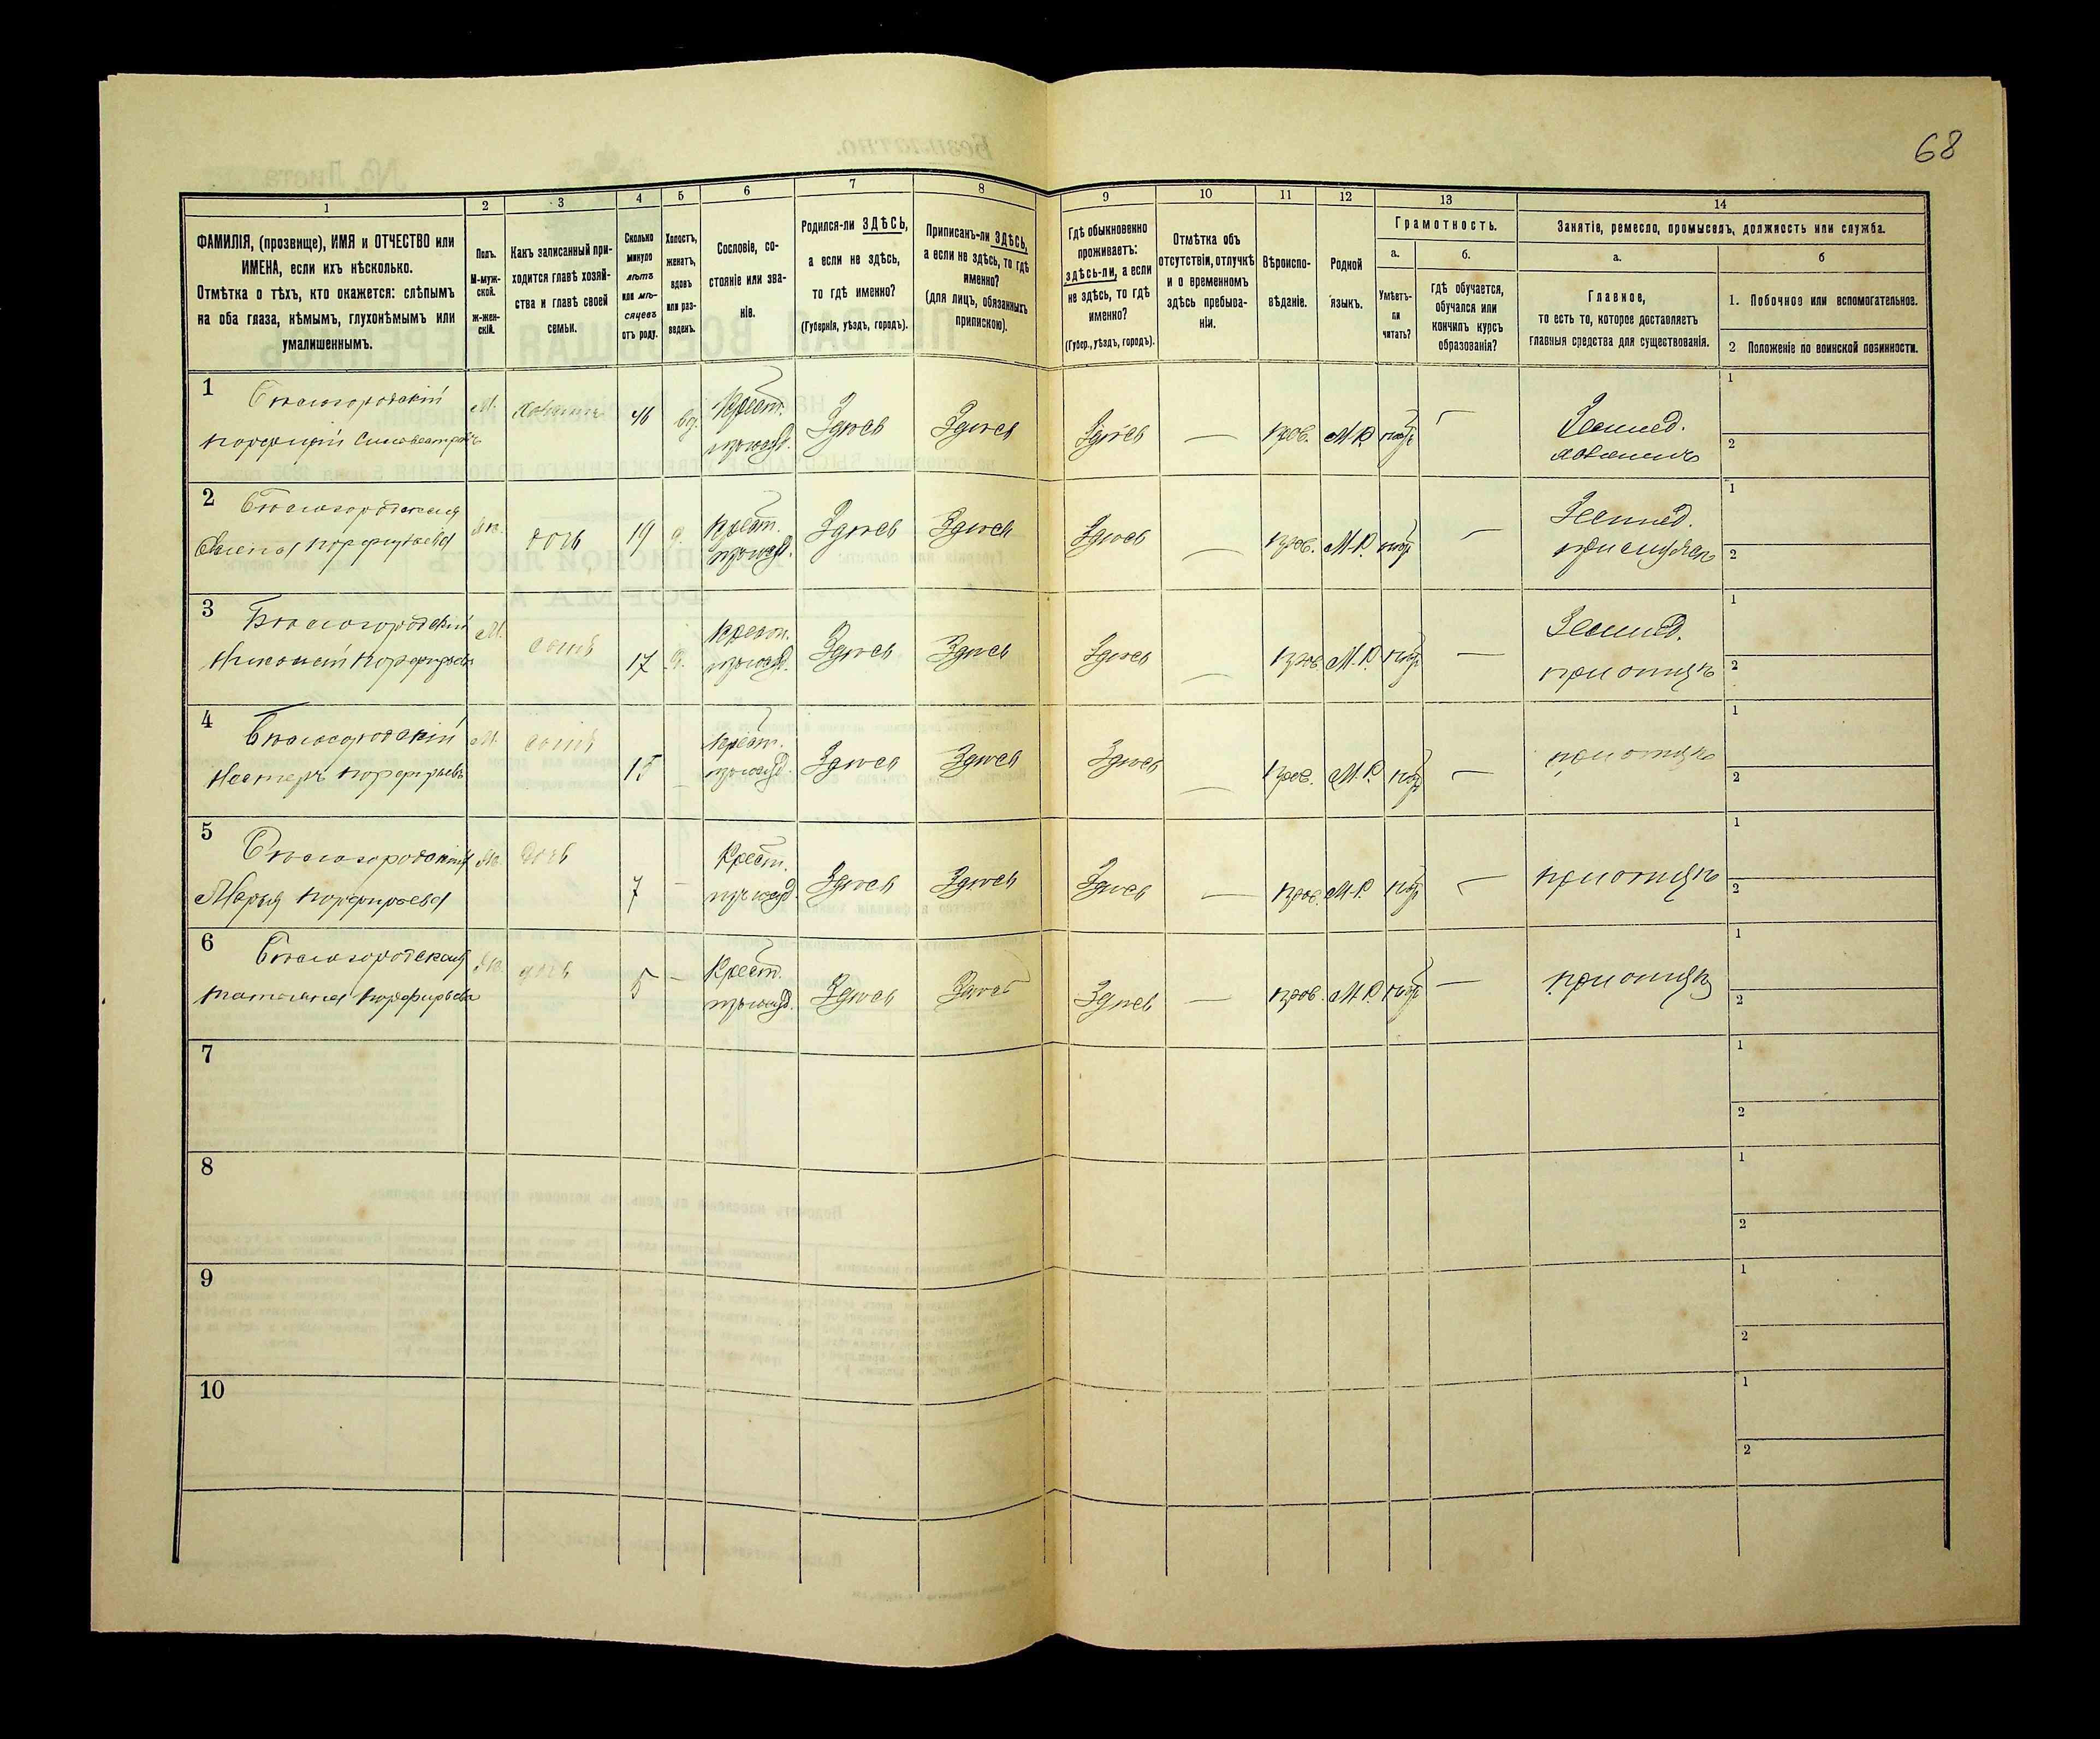 68
1
2
3
4
5
6
7
8
9
10
11
12
13
14
ФАМИЛІЯ, (прозвище), ИМЯ и ОТЧЕСТВО или
ИМЕНА, если ихъ нѣсколько.
Отмѣтка о тѣхъ, кто окажется: слѣпымъ
на оба глаза, нѣмымъ, глухонѣмымъ или
умалишеннымъ.
Полъ.
М-муж-
ской.
ж-жен-
скій.
Какъ записанный при-
ходится главѣ хозяй-
ства и главѣ своей
семьи.
Сколько
минуло
лѣтъ
или мѣ-
сяцевъ
отъ роду.
Холостъ,
женатъ,
вдовъ
или раз-
веденъ.
Сословіе, со-
стояніе или зва-
ніе.
Родился-ли ЗДѢСЬ,
а если не здѣсь,
то гдѣ именно?
(Губернія, уѣздъ, городъ).
Приписанъ-ли ЗДѢСЬ,
а если не здѣсь, то гдѣ
именно?
(для лицъ, обязанныхъ
припискою).
Гдѣ обыкновенно
проживаетъ:
здѣсь-ли, а если
не здѣсь, то гдѣ
именно?
(Губер., уѣздъ, городъ).
Отмѣтка объ
отсутствіи, отлучкѣ
и о временномъ
здѣсь пребыва-
ніи.
Вѣроиспо-
вѣданіе.
Родной
языкъ.
Грамотность.
а.
Умѣетъ-
ли
читать?
б.
гдѣ обучается,
обучался или
кончилъ курсъ
образованія?
Занятіе, ремесло, промыселъ, должность или служба.
а.
Главное,
то есть то, которое доставляетъ
главныя средства для существованія.
б
1. Побочное или вспомогательное.
2 Положеніе по воинской повинности.
1
Бѣлогородскій
Порфирій
М.
хозяинъ
46
вд.
Крест.
Здѣсь
Здѣсь
Здѣсь
—
прав.
М.Р.
Землед.
хозяинъ
1
2
2
Бѣлогородская
Порфирьева
ж.
дочь
19
Крест.
Здѣсь
Здѣсь
Здѣсь
—
прав.
М.Р.
—
Землед.
1
2
3
Бѣлогородскій
Порфирьевъ
М.
сынъ
17
Крест.
Здѣсь
Здѣсь
Здѣсь
—
прав.
М.Р.
—
Землед.
при отцѣ
1
2
4
Бѣлогородскій
Нестеръ Порфирьевъ
М.
сынъ
15
—
Крест.
Здѣсь
Здѣсь
Здѣсь
—
прав.
М.Р.
—
при отцѣ
1
2
5
Бѣлогородская
Марья Порфирьева
ж.
дочь
7
—
Крест.
Здѣсь
Здѣсь
Здѣсь
—
прав.
М.Р.
—
при отцѣ
1
2
6
Бѣлогородская
Татьяна Порфирьева
ж.
дочь
5
—
Крест.
Здѣсь
Здѣсь
Здѣсь
—
прав.
М.Р.
—
при отцѣ
1
2
7
1
2
8
1
2
9
1
2
10
1
2